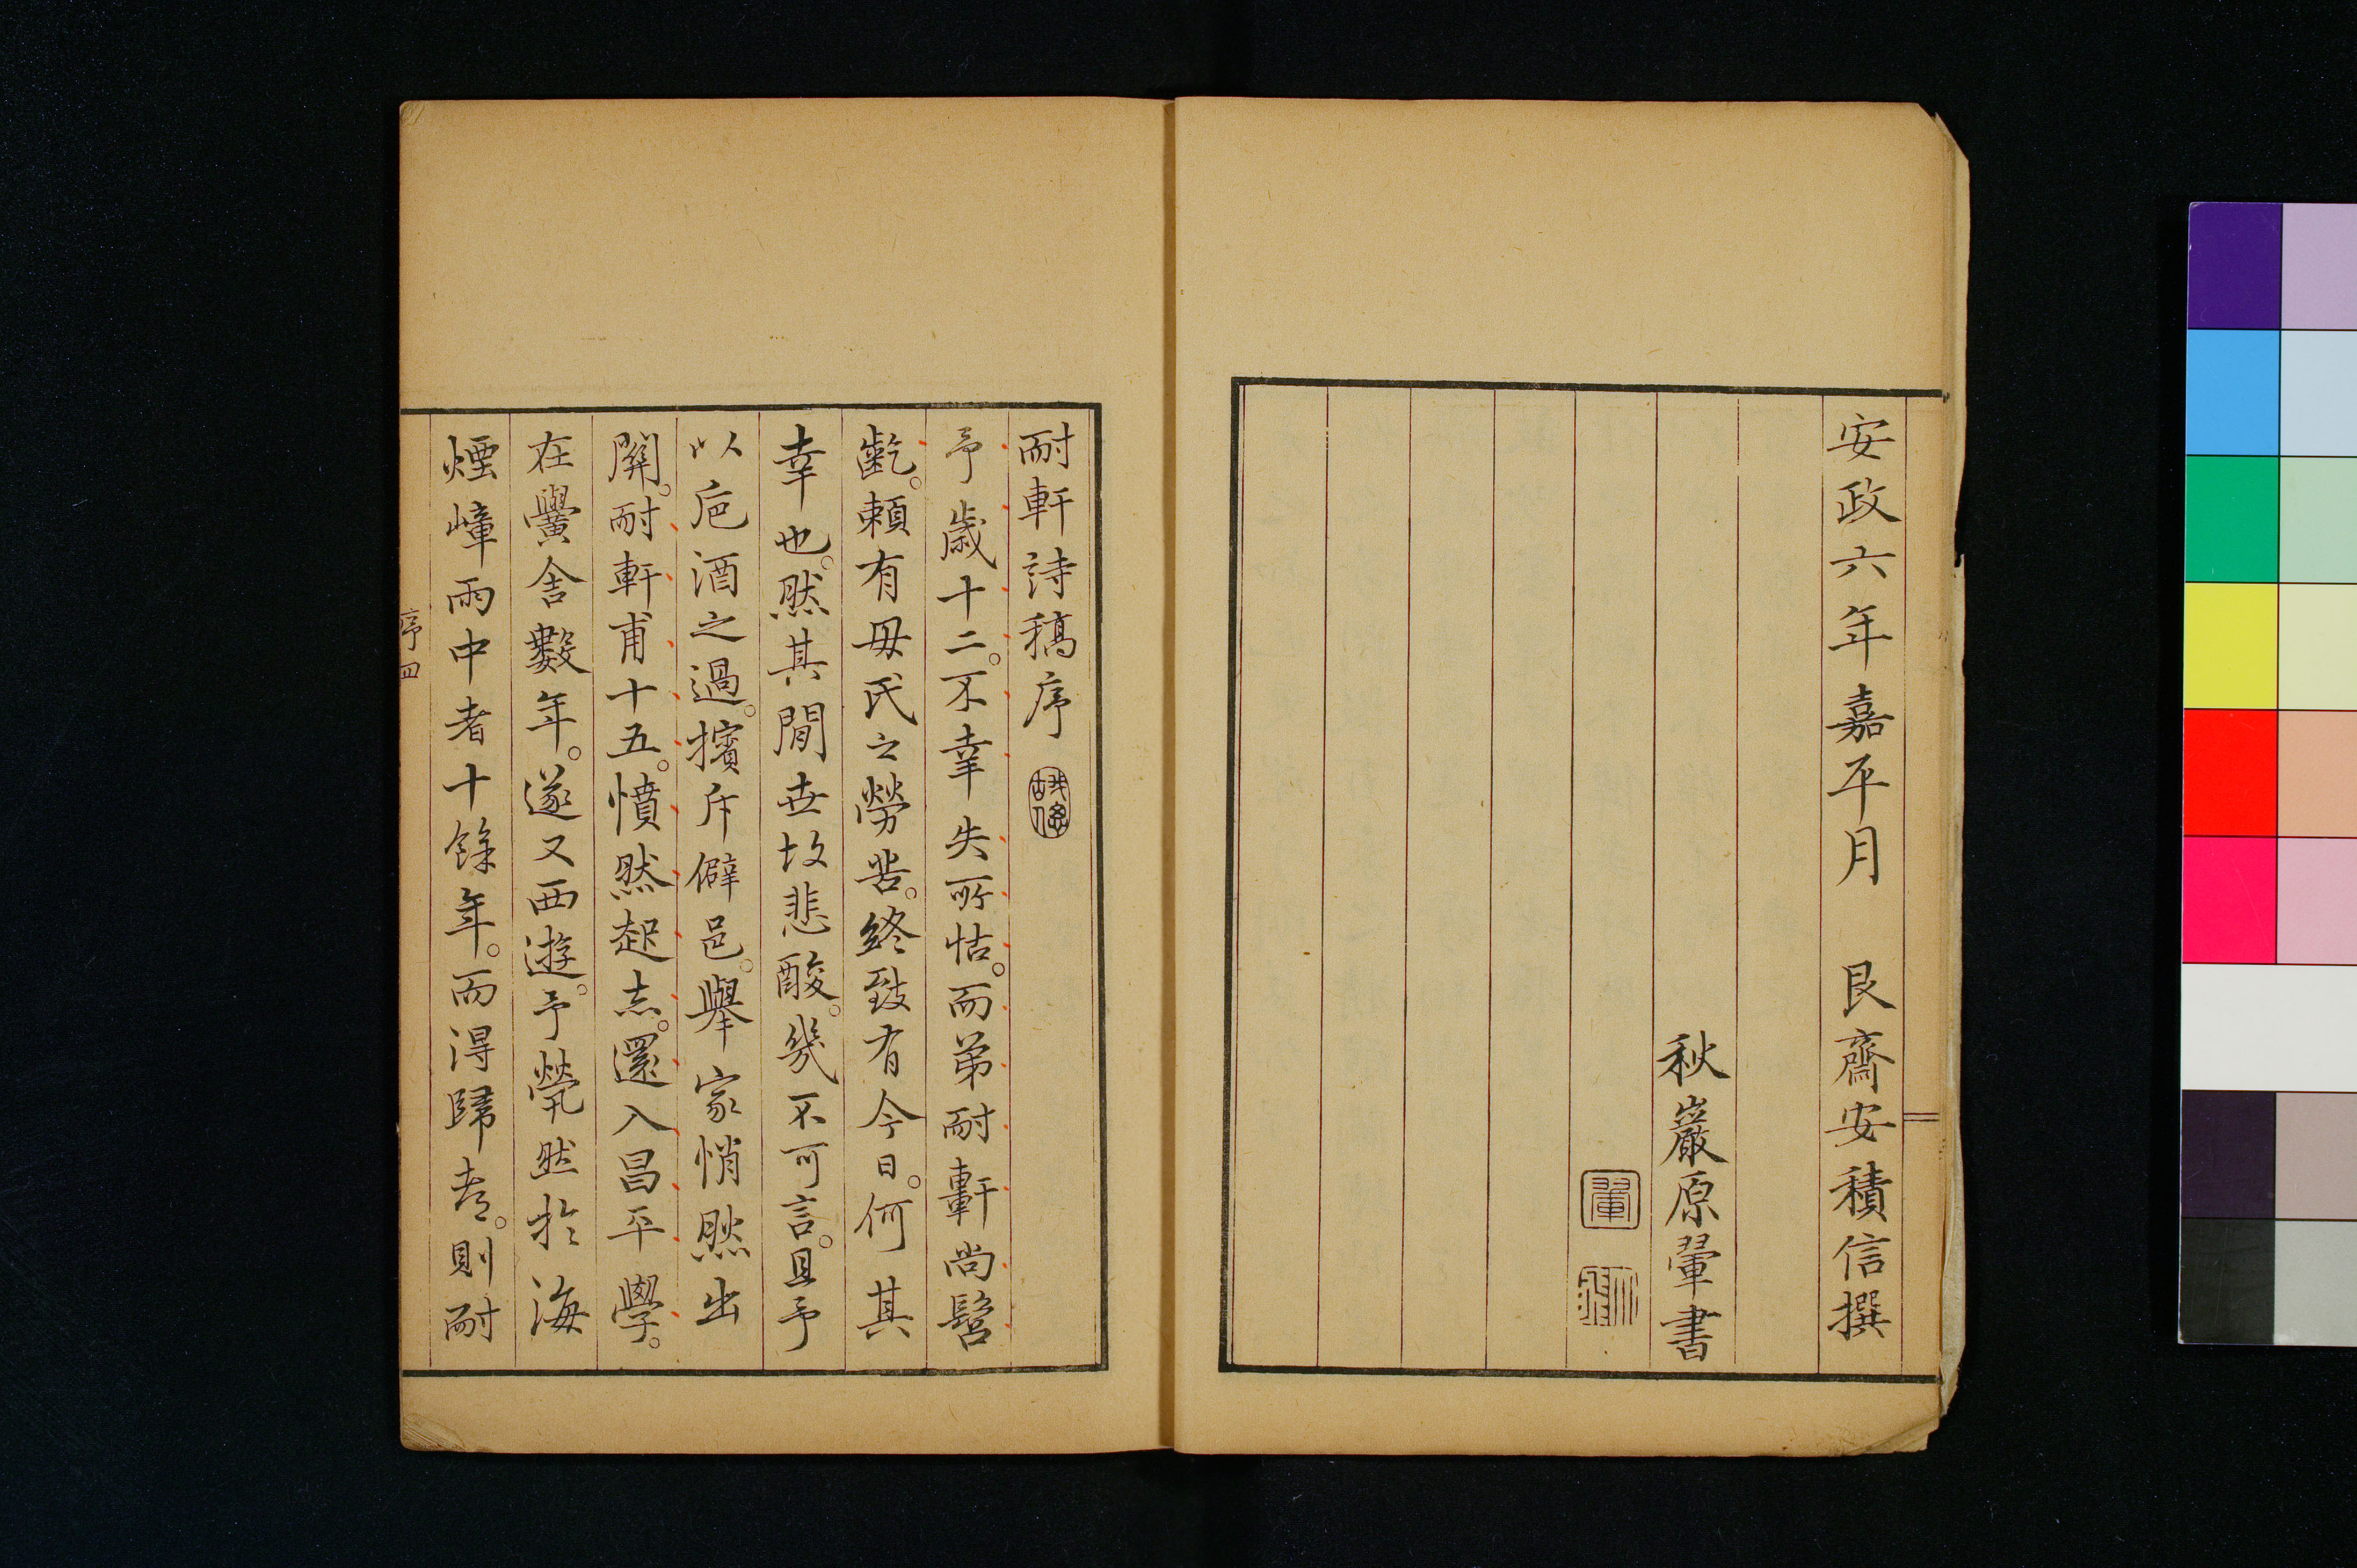 安政六年嘉平月　艮齋安積信撰
秋巖原翬書
耐軒詩稿序
予歲十二。不幸失所怙。而弟耐軒尚髫
齔。賴有母氏之勞苦。終致有今日。何其
幸也。然其間世故悲酸。幾不可言。且予
以巵酒之過。擯斥僻邑。舉家悄然出
關。耐軒甫十五。憤然起志。還入昌平學。
在黌舍數年。遂又西遊。予煢然於海
煙嶂雨中者十餘年。而得歸老。則耐
序四